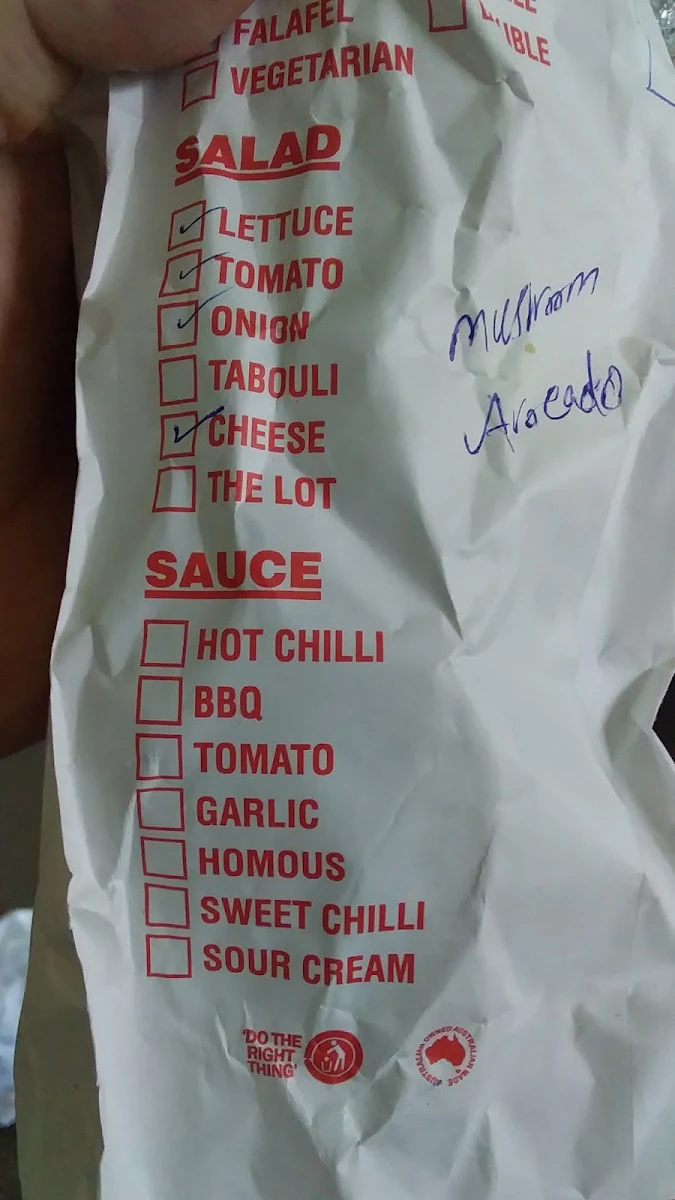 FALAFEL
VEGETARIAN
SALAD
LETTUCE
TOMATO
ONION
TABOULI
CHEESE
THE LOT
Mushroom
Avocado
SAUCE
HOT CHILLI
BBQ
TOMATO
GARLIC
HOMOUS
SWEET CHILLI
SOUR CREAM
'DO THE
RIGHT
THING'
AUSTRALIAN OWNED AUSTRALIAN MADE